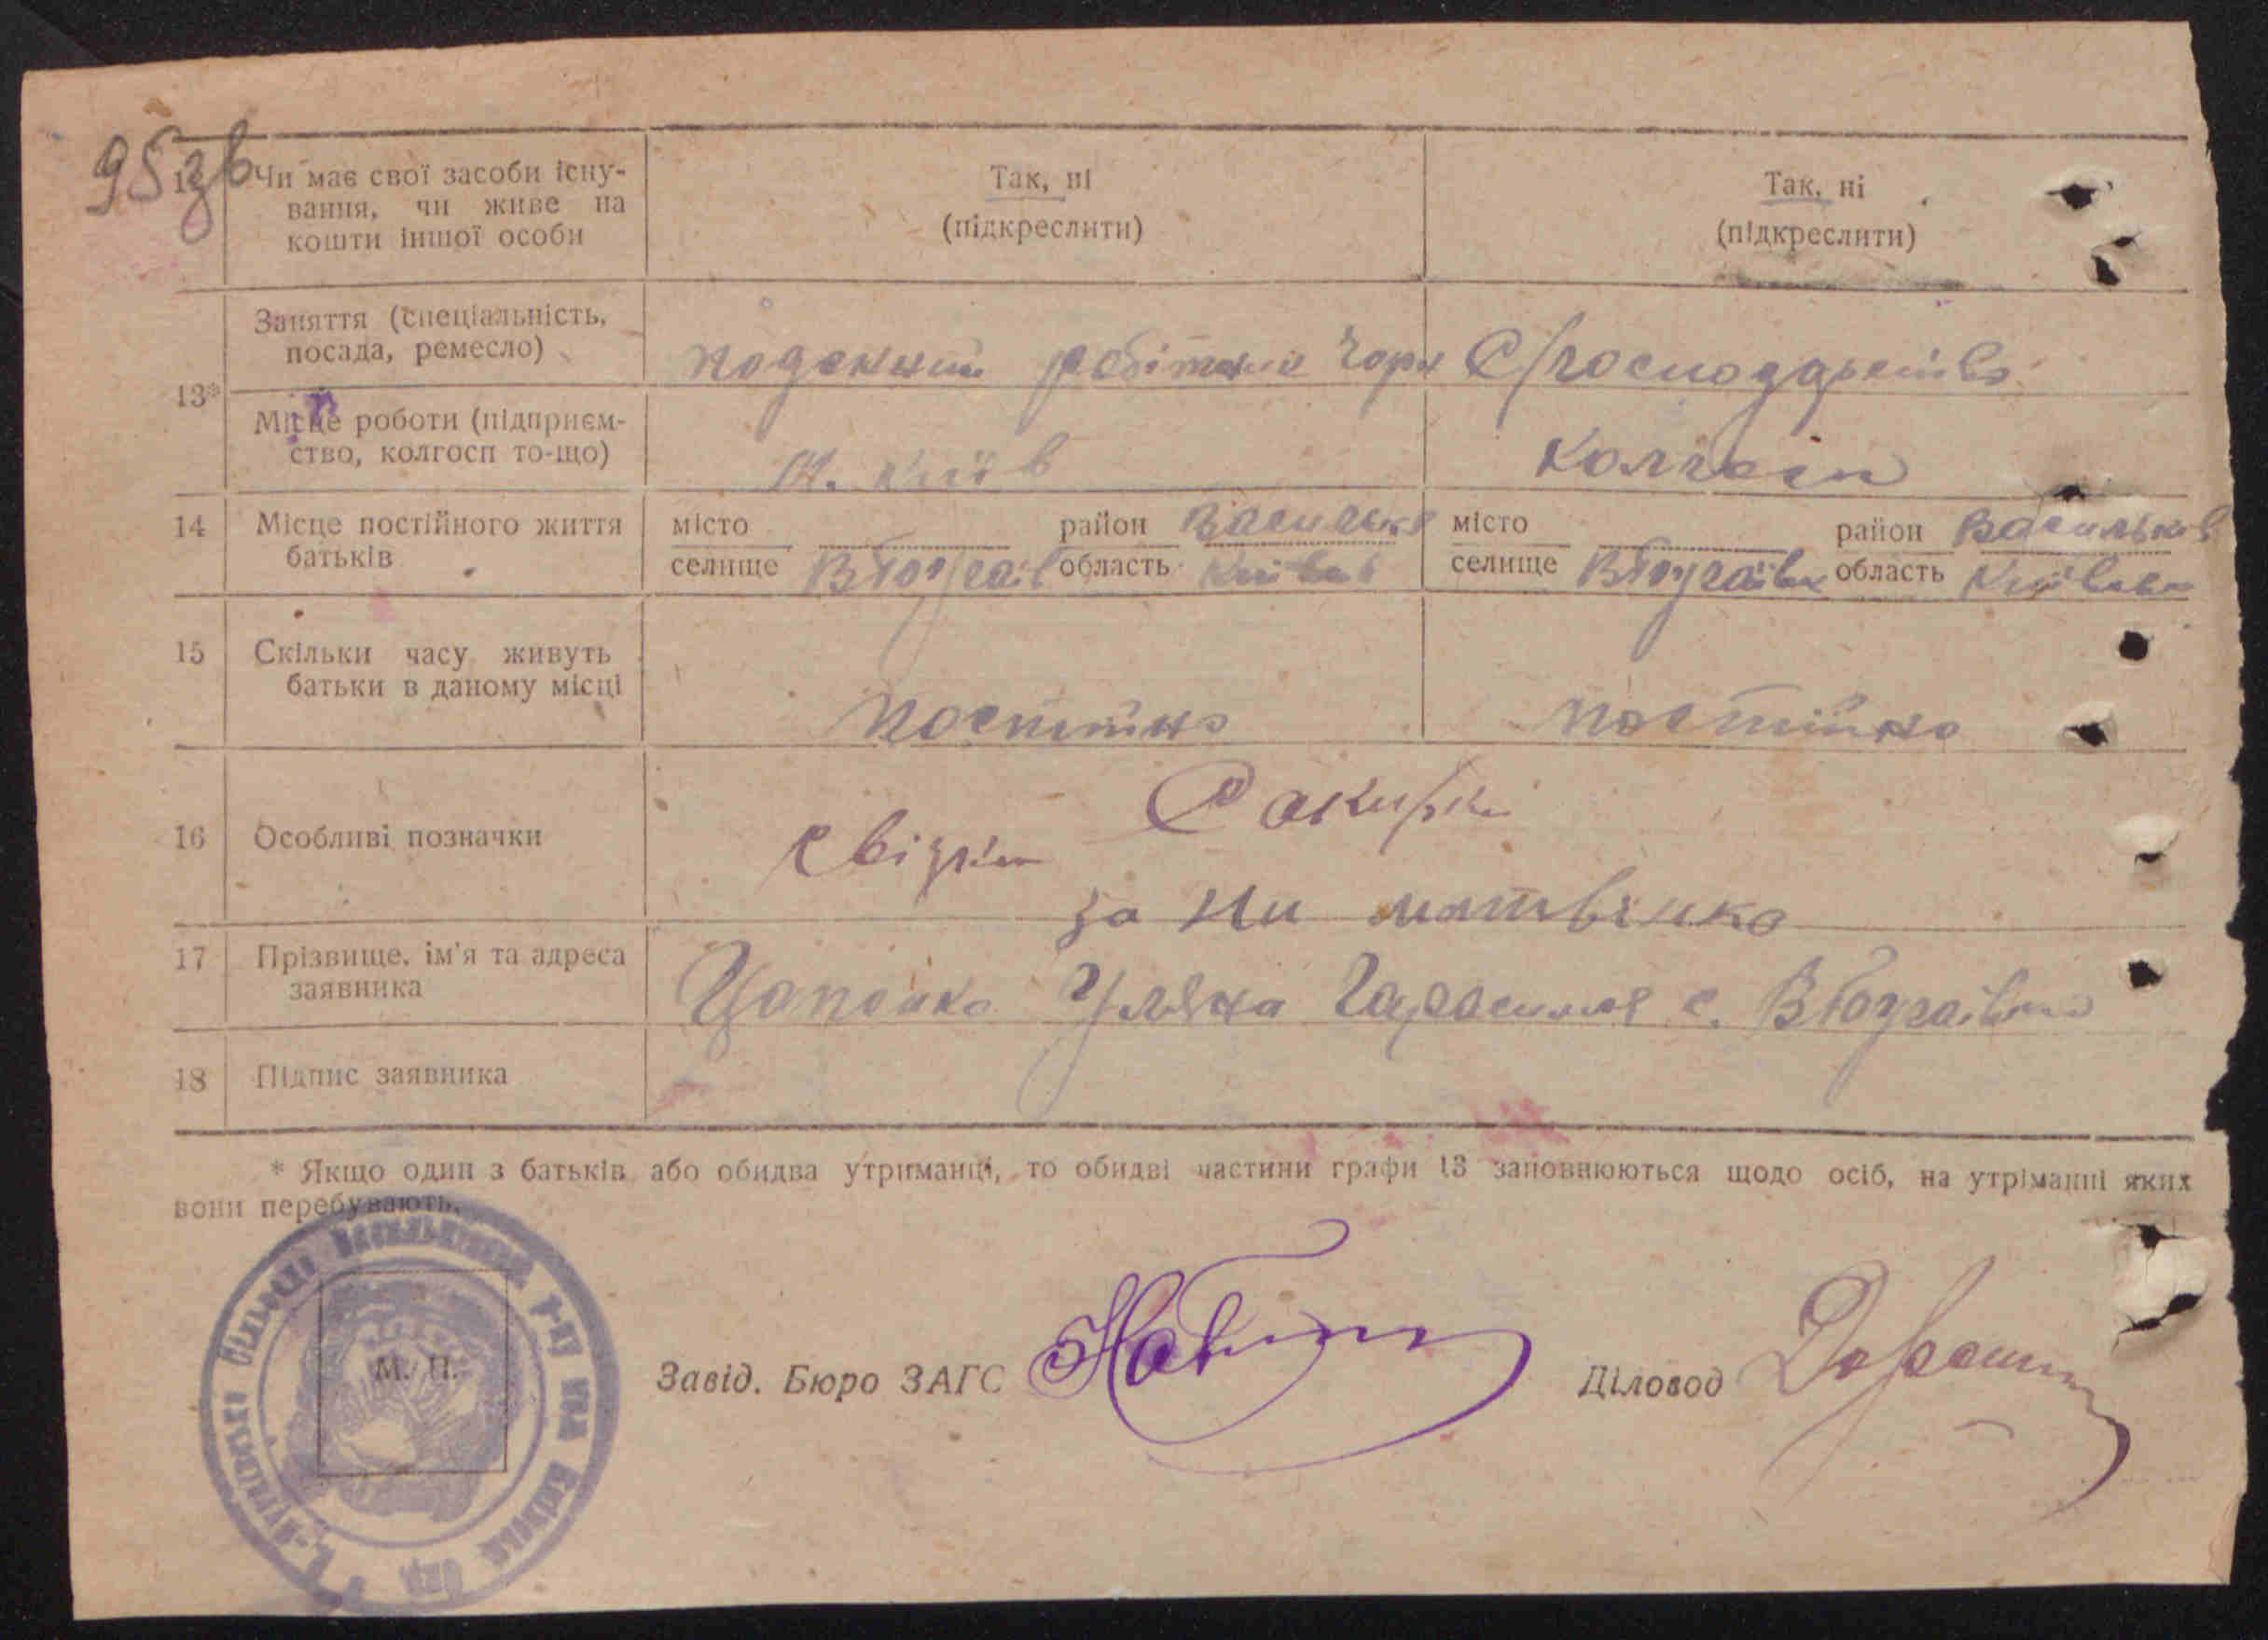 95 зв
12 Чи має свої засоби існу-
вання, чи живе на
кошти іншої особи
Так, ні
(підкреслити)
Так, ні
(підкреслити)
13*
Заняття (спеціальність,
посада, ремесло)
поденний робітник чорн
С/господарство
Місце роботи (підприєм-
ство, колгосп то-що)
м. Київ
Колгосп
14 Місце постійного життя
батьків
місто район Васильків
селище область Київськ
місто район Васильків
селище область Київська
15 Скільки часу живуть
батьки в даному місці
постійно
постійно
16 Особливі позначки
свідки
за Ни матвієнко
17 Прізвище, ім'я та адреса
заявника
Цапенко Уляна Гарасимов с.
18 Підпис заявника
* Якщо один з батьків або обидва утриманці, то обидві частини графи 13 заповнюються щодо осіб, на утріманні яких
вони перебувають.
М. П.
Завід. Бюро ЗАГС
Діловод